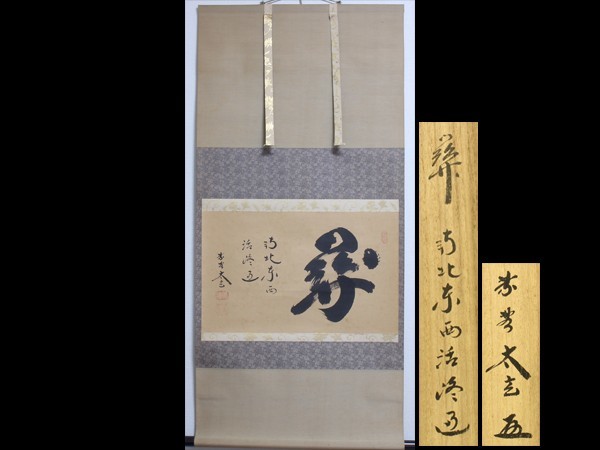 関
南北東西
活路通
紫野 太玄
関 南北東西活路通
紫野 太玄